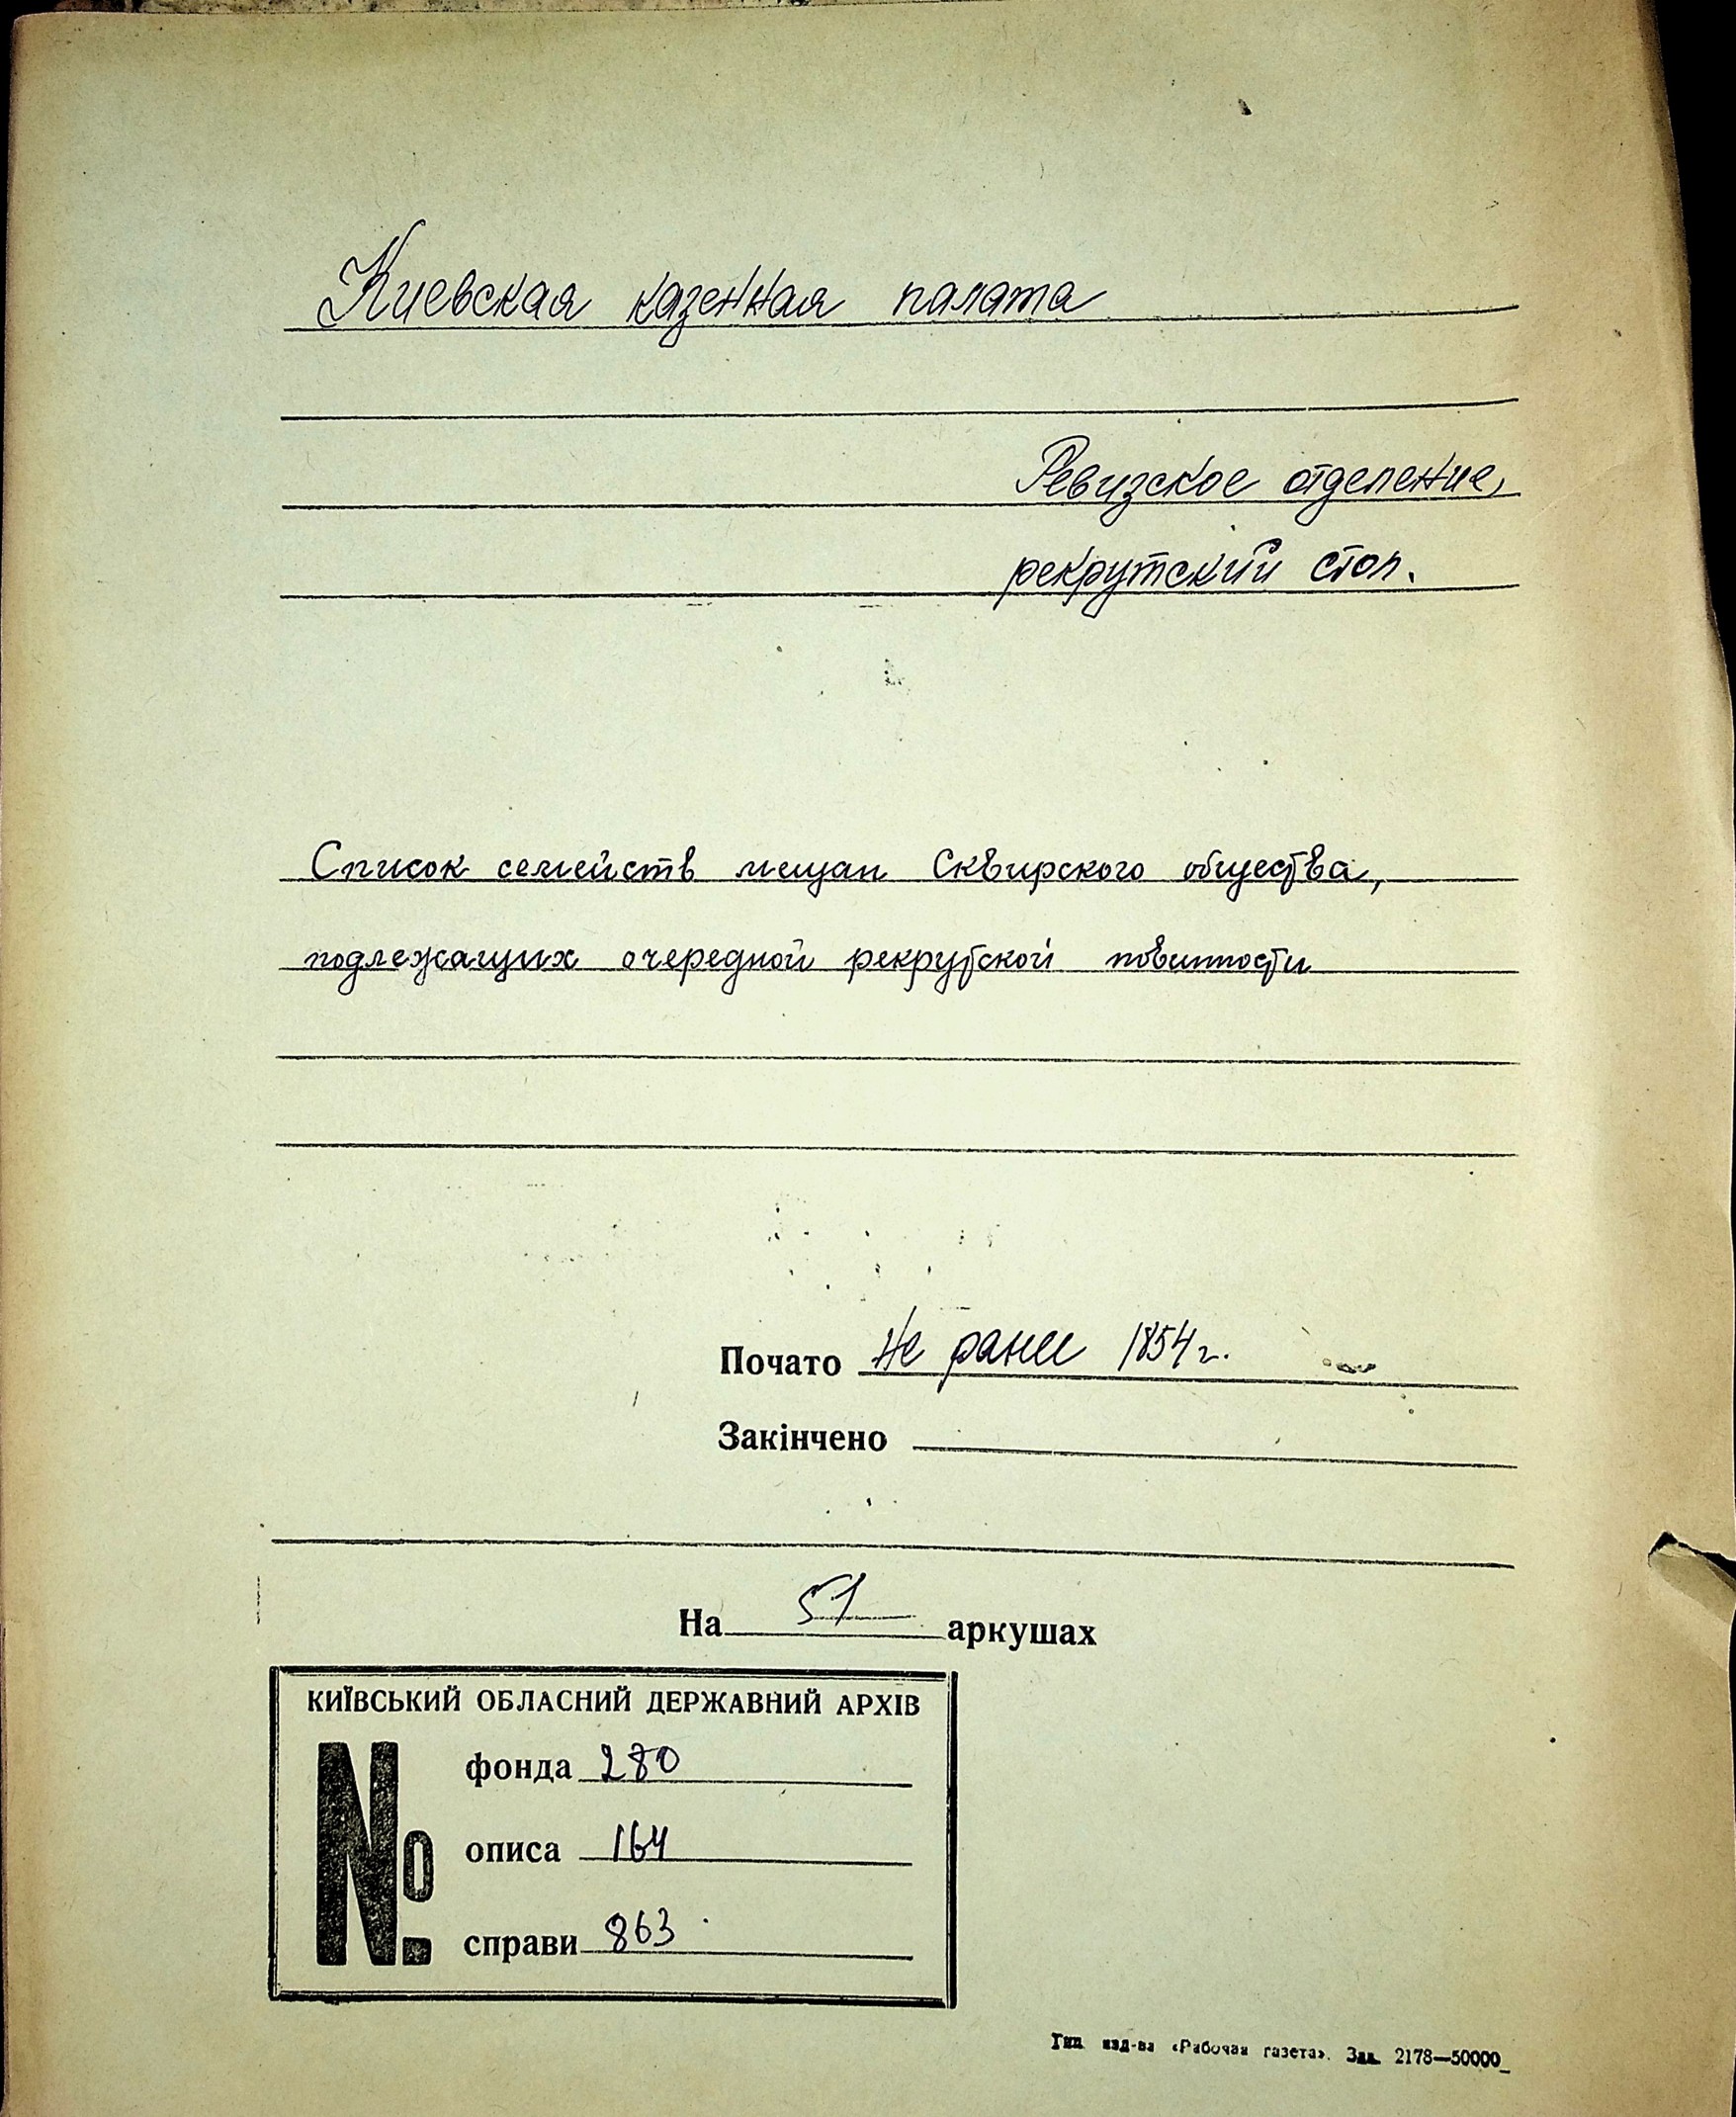 Киевская казенная палата
Ревизское отделение,
рекрутский стол.
Список семейств мещан Сквирского общества,
подлежащих очередной рекрутской повинности
Почато не ранее 1854 г.
Закінчено
На 51 аркушах
КИЇВСЬКИЙ ОБЛАСНИЙ ДЕРЖАВНИЙ АРХІВ
№
фонда 280
описа 164
справи 863
Тип. изд-ва «Рабочая газета». Зак. 2178—50000